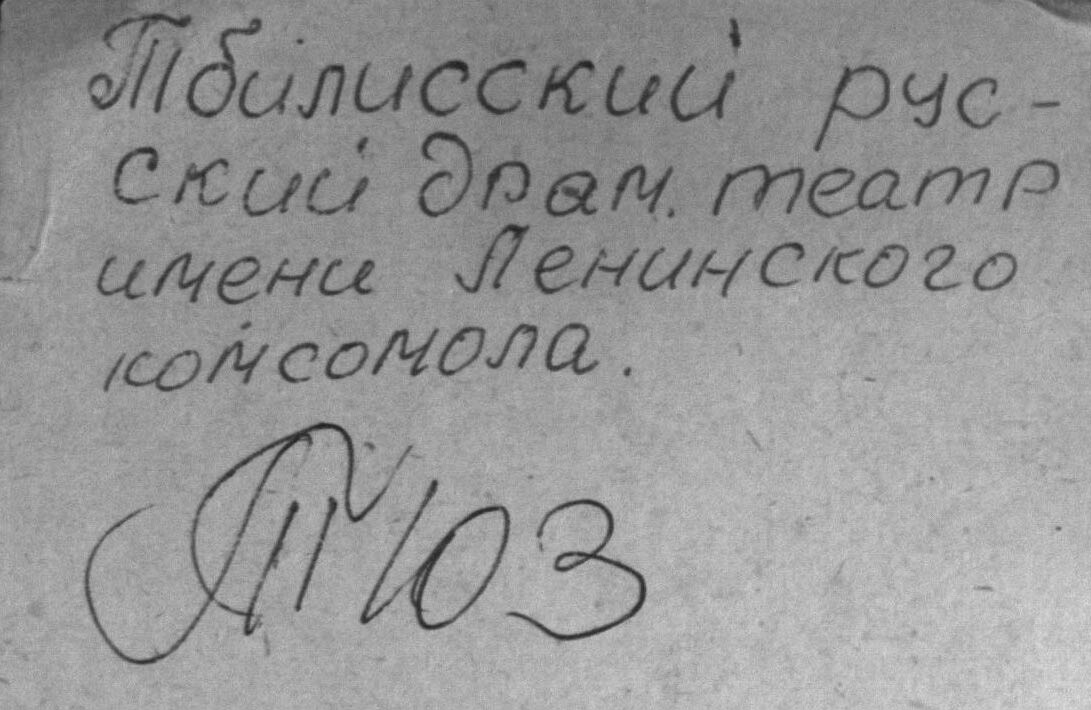 Тбилисский рус-
ский драм. театр
имени Ленинского
комсомола.
ТЮЗ